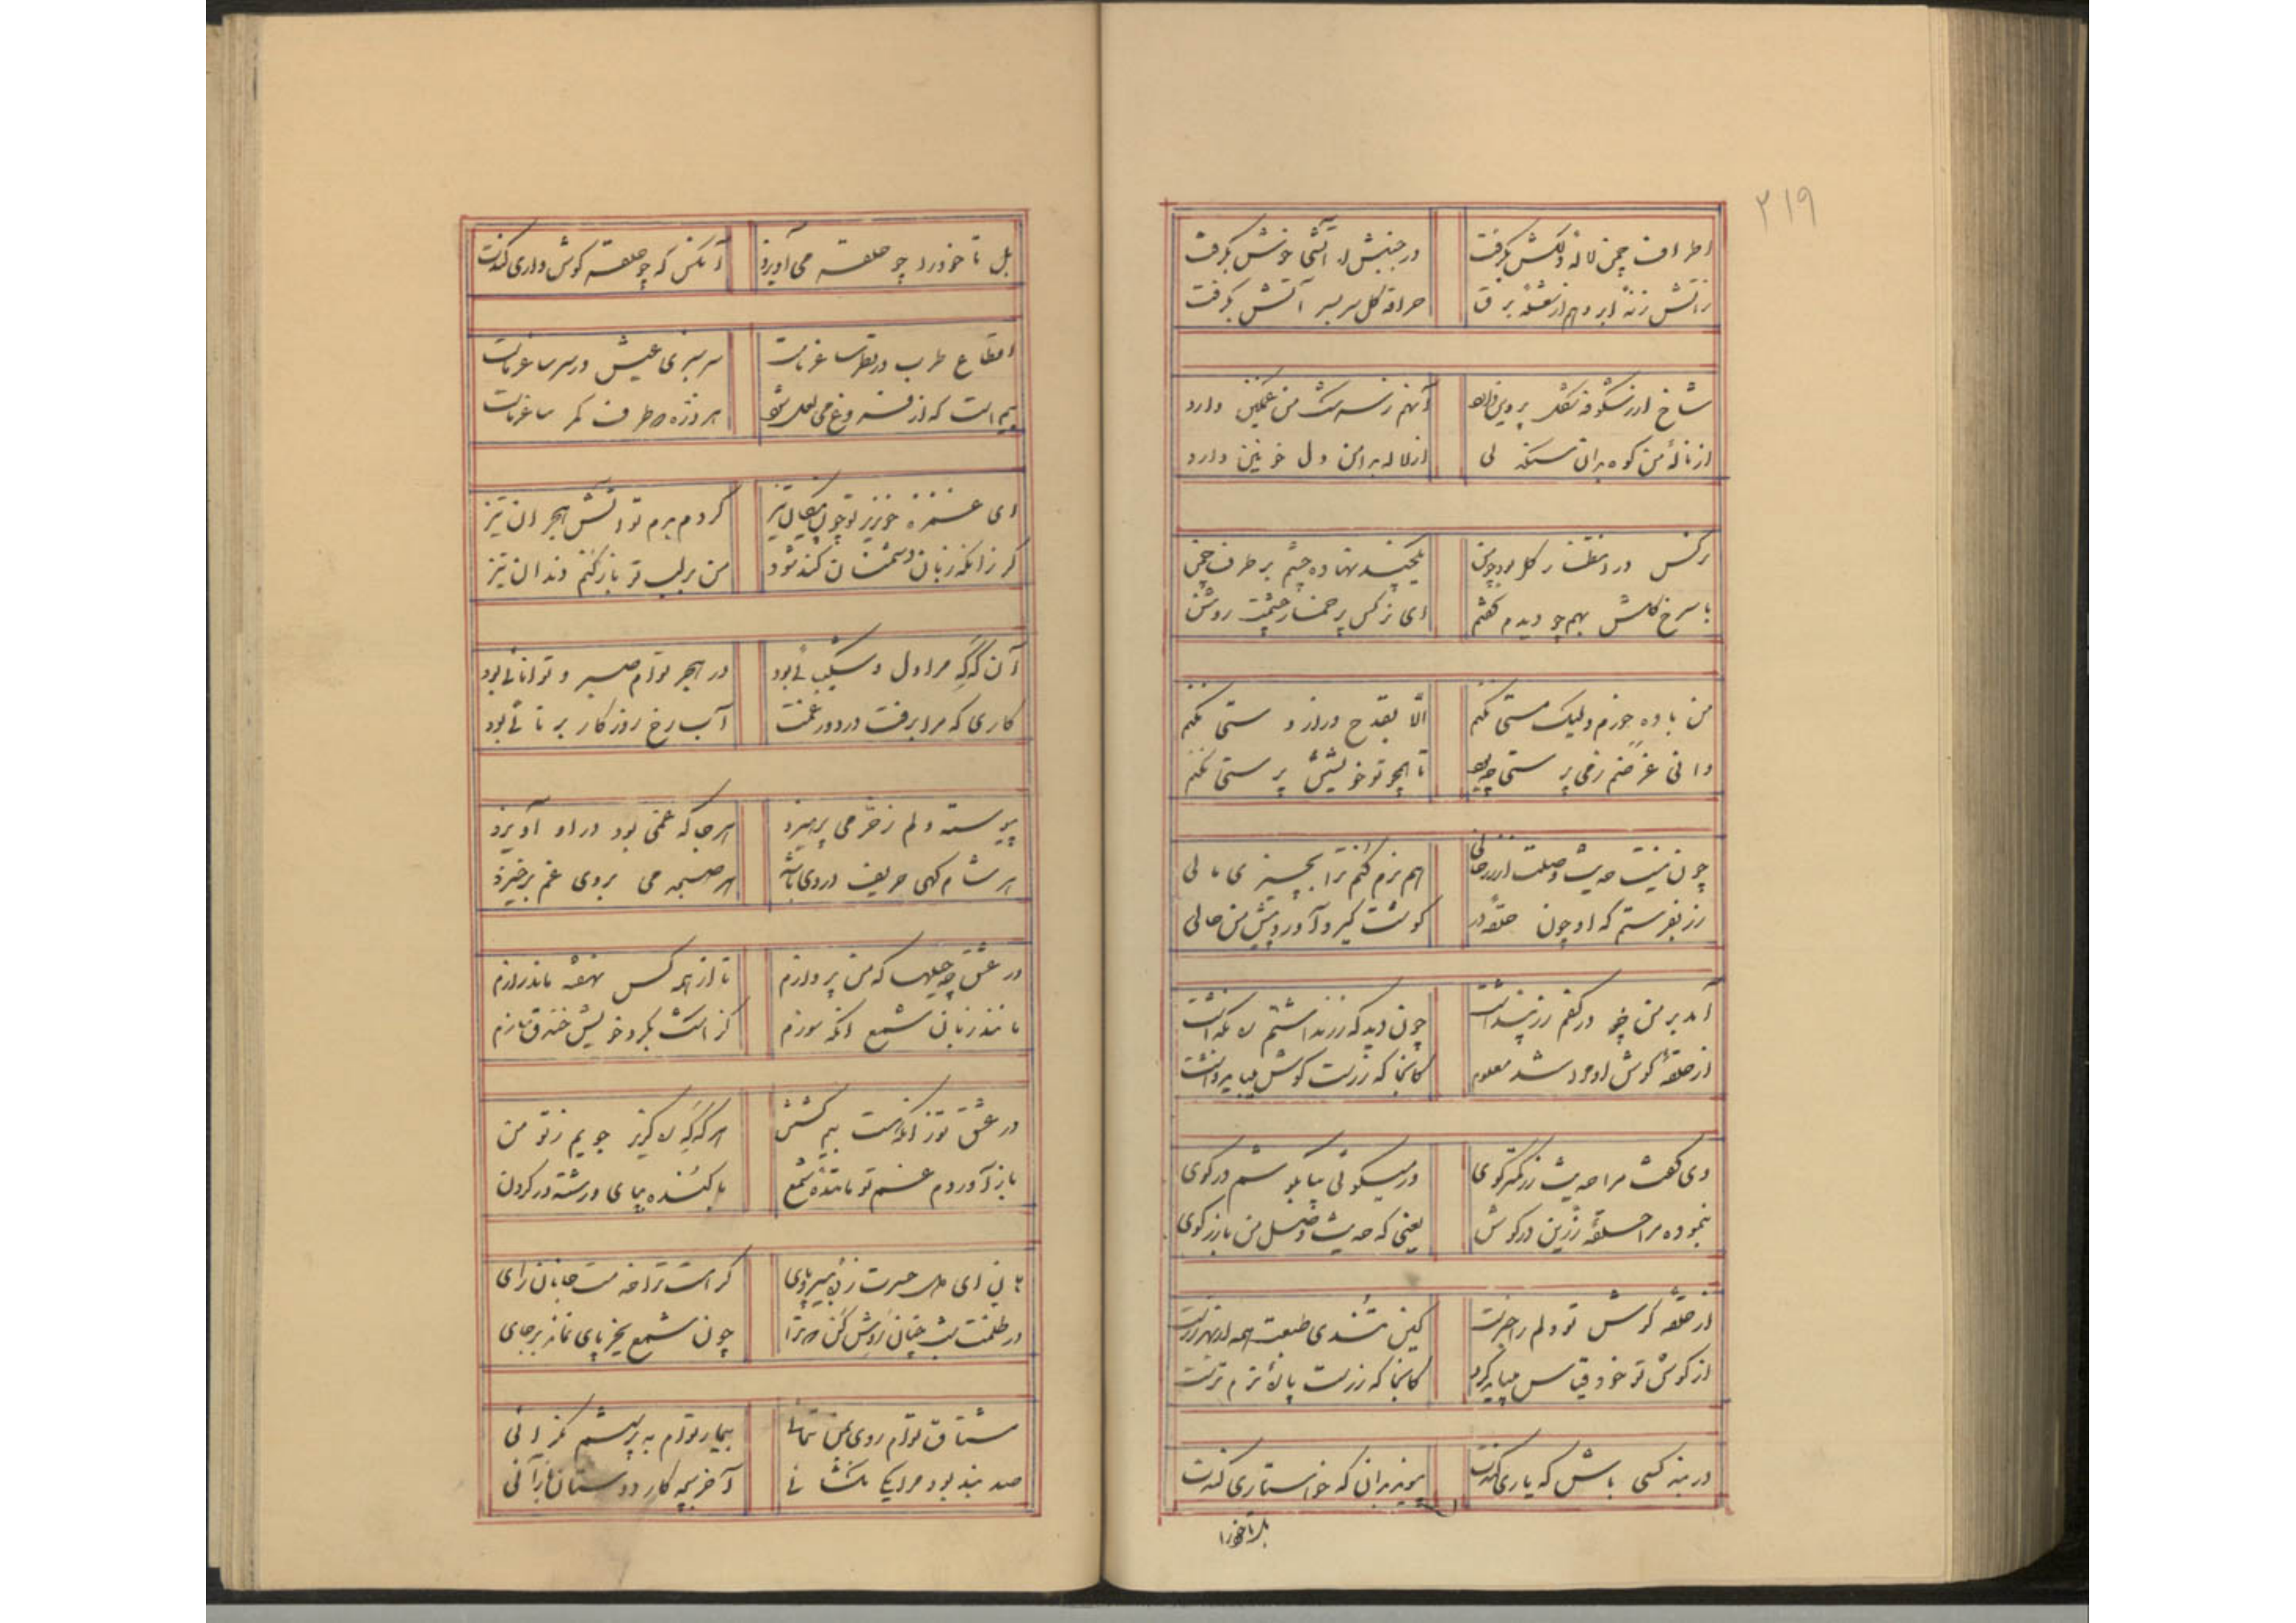 ۲۱۹
اطراف چمن لاله دلکش بگرفت
در جنبش آتشی خوش بگرفت
زآتش زنهٔ ابر وهم از شعلهٔ برق
حراقهٔ گل سر بسر آتش بگرفت
شاخ از شکوفه شکل پروین دارد
آنهم ز سرشک من غمگین دارد
از نالهٔ من کوه بدان سنگدلی
از لاله بدامن دل خونین دارد
نرکس در انتظار کل بود چو من
یکچند نهاده چشم بر طرف چمن
با سرخ کلش بهم چو دیدم کفتم
ای نرکس پر خمار چشمت روشن
من باده خورم ولیک مستی نکنم
الّا بقدح دراز دستی نکنم
دانی غرضم ز می پرستی چه بود
تا همچو تو خویشتن پرستی نکنم
چون نیست حدیث وصلت از زر خالی
هم نرم کنم ترا بچیزی مالی
زر بفرستم که او چون حلقهٔ در
کوشت کیرد آورد پیش من حالی
آمد بر من چو در کفم زر پنداشت
چون دید که زر نداشتم بگذاشت
از حلقهٔ کوش او مرا شد معلوم
کانجا که زرست کوش میباید داشت
دی کفت مرا حدیث زر کمتر کوی
در میکوئی بیا بکوشم در کوی
بنموده مرا حلقهٔ زرّین در کوش
یعنی که حدیث وصل من با زر کوی
از حلقه کوش تو دلم را خبرست
کین تندی طبعت همه از بهر زرست
از کوش تو خود قیاس میباید کرد
کانجا که زرست پارهٔ نرم ترست
در بند کسی باش که یاری کندت
پیوند بدان که خواستاری کندت
بل تا خود را
بل تا خود را چو حلقه می آویزد
آنکس که چو حلقه کوش داری کندت
اقطاع طرب در نظر ساغر ماست
سر سبزی عیش در سر ساغر ماست
بیم است که از فروغ می لعل شود
هر ذره که طرف کمر ساغر ماست
ای غمزه خونریز تو چون پیکان تیز
کردم برم تو آتش هجران تیز
کر زانکه زبان دشمنان کند شود
من بر لب تو باز کنم دندان تیز
آن کَه که مرا دل و شکیبائی بود
در هجر توام صبر و توانائی بود
کاری که مرا برفت در دور غمت
آب رخ روزکار برنائی بود
پیوسته دلم ز خرّمی پرهیزد
هر جا که غمی بود در او آویزد
هر شام کهی حریف دردی باشد
هر صبحدمی بروی غم برخیزد
در عشق چه حیلها که من پردازم
تا از همه کس نهفته ماند رازم
مانند زبان شمع از آنکه سوزم
کز اشک بکرد خویش خندق سازم
در عشق تو زانکه هست بیم کشتن
هر کَه که کریز جویم ز تو من
باز آوردم غم تو مانندهٔ شمع
با کنده بپای و رشته در کردن
هان ای دل حسرت زدهٔ بیسر و پای
کر هست ترا خدمت جانان رای
در ظلمت شب چنان روش کن که ترا
چون شمع بجز پای نماند بر جای
مشتاق توام روی بمن ننمائی
بیمار توام به پرسشم کم آئی
صد بند بود مرا یکی نکشائی
آخر بچه کار دوستان باز آئی